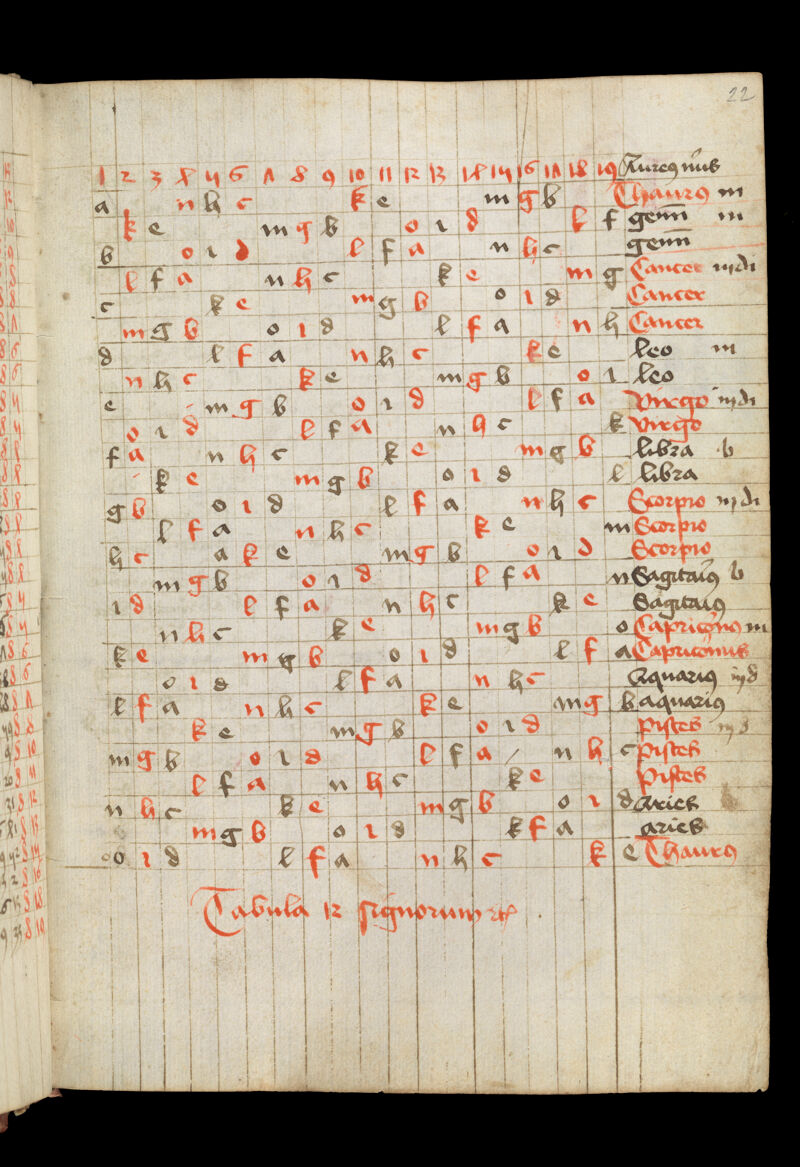 22
1 2 3 4 5 6 7 8 9 10 11 12 13 14 15 16 17 18 19 Aureus nus
a n h c k e m g b Thaurus m
k e m g b o i d l f gemi m
b o i d l f a n h c gemi
l f a n h c k e m g Cancer m di
c k e m g b o i d Cancer
m g b o i d l f a n h Cancer
d l f a n h c k e leo m
n h c k e m g b o i leo
e m g b o i d l f a Virgo m di
o i d l f a n h c k Virgo
f a n h c k e m g b libra b
k e m g b o i d l libra
g b o i d l f a n h c Scorpio m di
l f a n h c k e m Scorpio
h c a k e m g b o i d Scorpio
m g b o i d l f a n Sagitarius b
i d l f a n h c k e Sagitarius
n h c k e m g b o Capricornus m
k e m g b o i d l f a Capricornus
o i d l f a n h c Aquarius m d
l f a n h c k e m g b aquarius
k e m g b o i d Pisces m d
m g b o i d l f a n h c Pisces
l f a n h c k e Pisces
n h c k e m g b o i d Aries
m g b o i d k f a aries
o i d l f a n h c k e Thaurus
Tabula 12 signorum etc